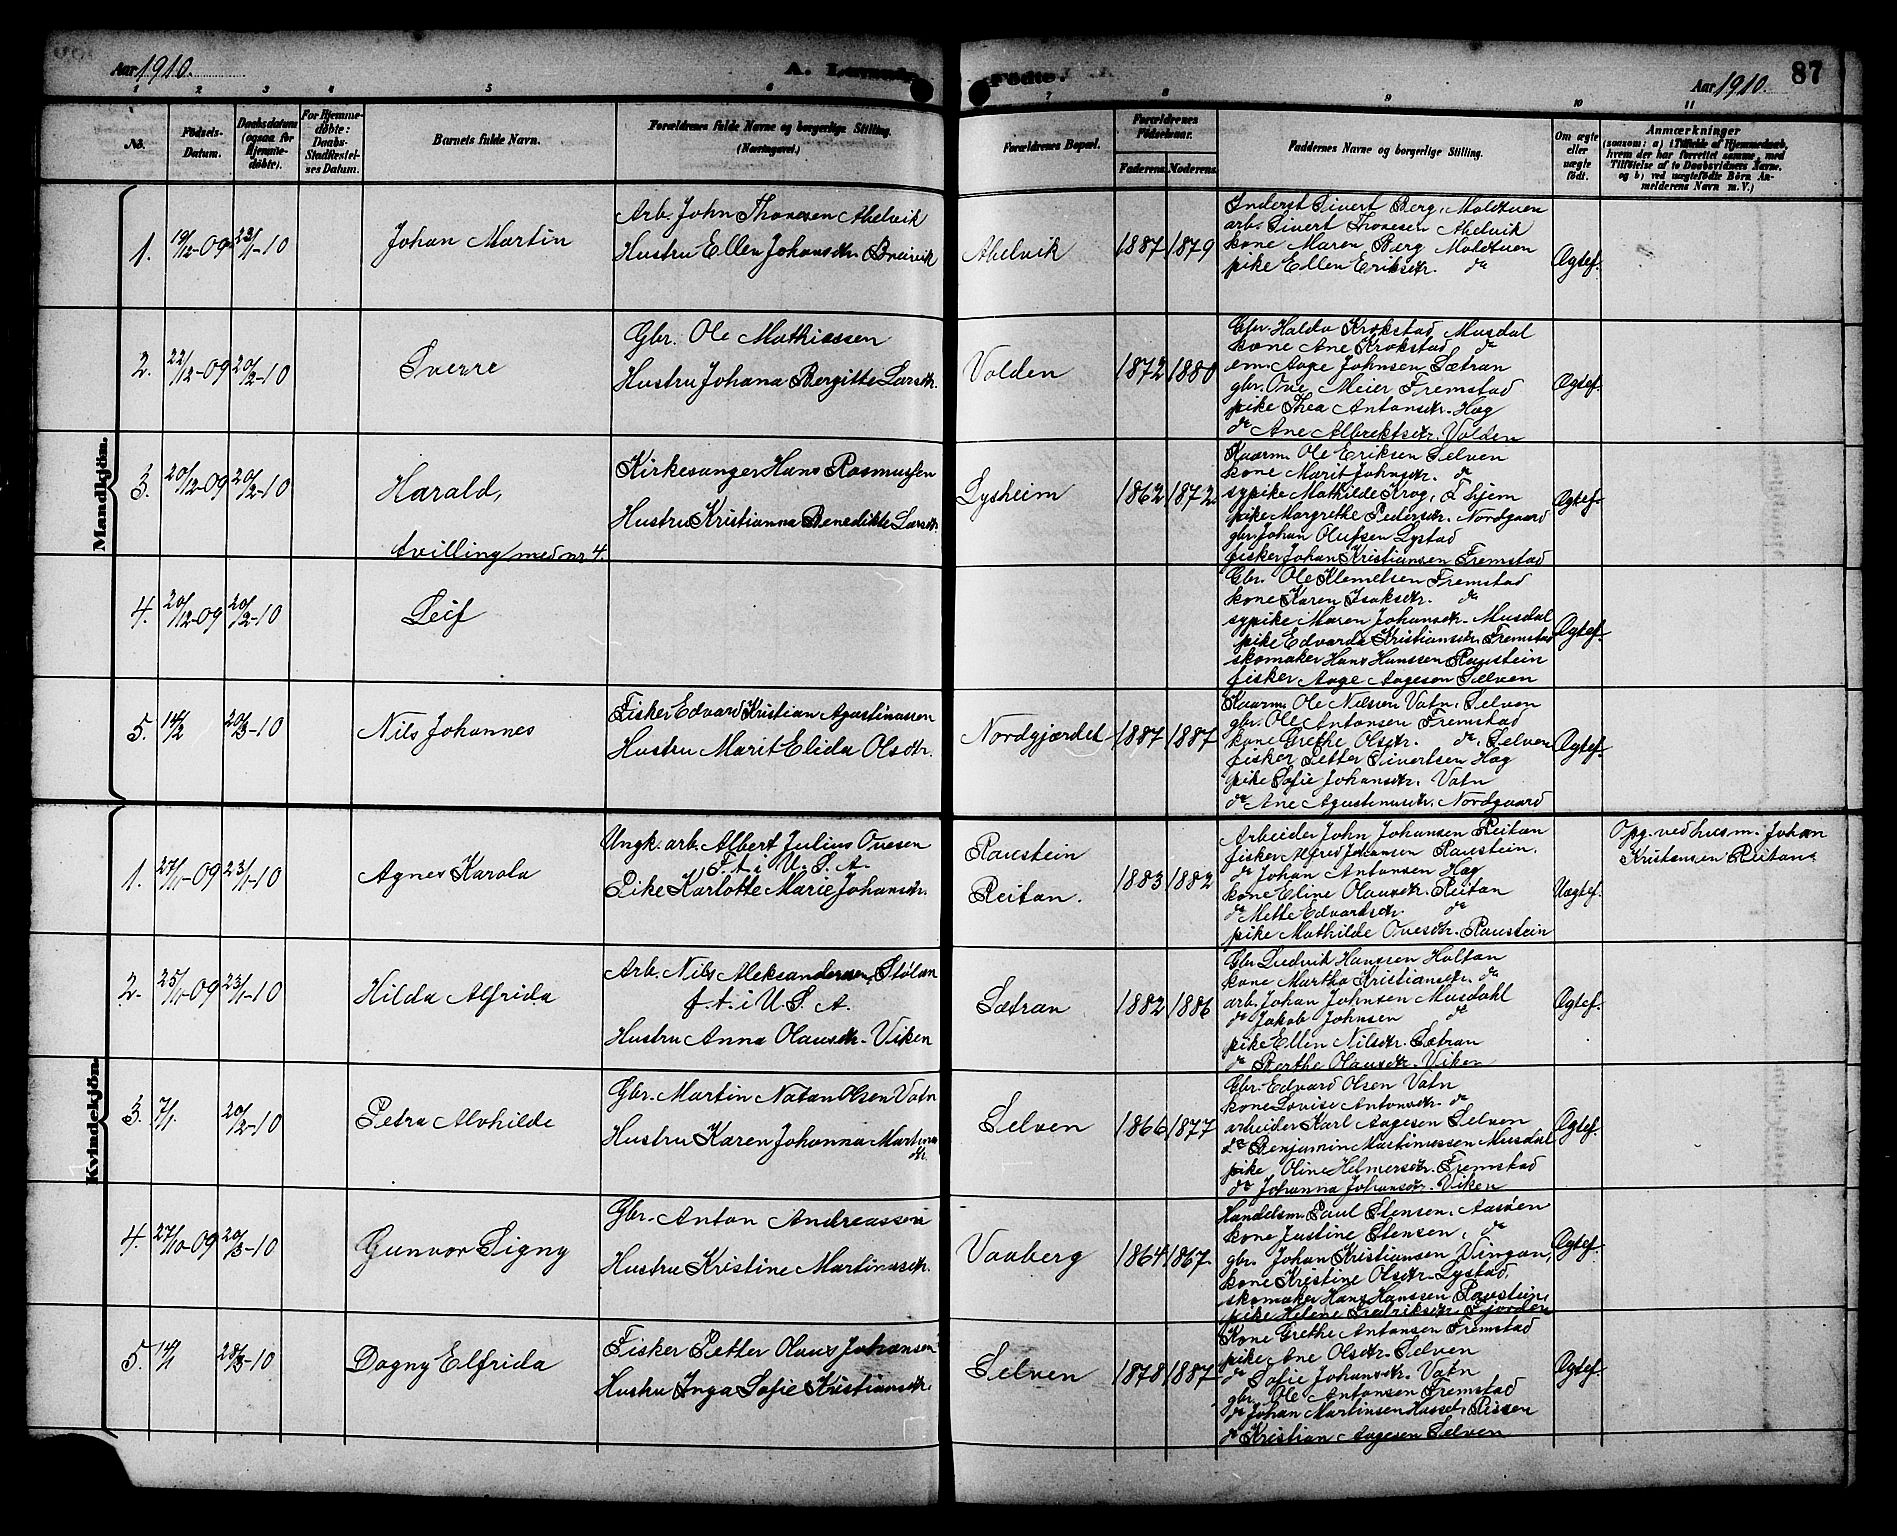 Aar 1910.
A. Levende
Fødte.
Aar 1910.
87
1 2 3 4 5 6 7 8 9 10 11
No.
Fødsels-Datum.
Daabsdatum (ogsaa for Hjemmedøbte).
For Hjemmedøbte: Daabs-Stadfæstelses Datum.
Barnets fulde Navn.
Forældrenes fulde Navne og borgerlige Stilling. (Næringsvei.)
Forældrenes Bopæl.
Forældrenes Fødselsaar.
Faderens. Moderens.
Faddernes Navne og borgerlige Stilling.
Om ægte eller uægte født.
Anmærkninger
(saasom: a) i Tilfælde af Hjemmedaab, hvem der har forrettet samme, med Tilføielse af to Daabsvidners Navne, og b) ved uægtefødte Børn Anmelderens Navn m. V.)
Mandkjøn.
1. 19/12-09 23/1-10 Johan Martin
Arb. John Thonesen Abelvik
Hustru Ellen Johansdtr. Breivik
Abelvik 1887 1879
Inderst Sivert Berg, Moldtuen
arb. Sivert Thonesen Abelvik
kone Maren Berg Moldtuen
pike Ellen Eriksdtr. do
Ægtef.
2. 22/12-09 20/2-10 Sverre
Gbr. Ole Mathiassen
Hustru Johana Bergitte Larsdtr.
Volden 1872 1880
Gbr. Haldo Krokstad Musdal
kone Ane Krokstad do
em. Aage Johnsen Sætran
gbr. Ove Meier Fremstad
pike Thea Antonsdtr. Hag
do Ane Albriktsdtr. Volden
Ægtef.
3. 20/12-09 20/2-10 Harald,
tvilling med nr 4.
Kirkesanger Hans Rasmussen
Hustru Kristianna Benedikte Larsdtr.
Lysheim 1862 1872.
Kaarm. Ole Eriksen Selven
kone Marit Johnsdtr. do
sypike Mathilde Krog, Thjem
pike Margrethe Pedersdtr. Nordgaard
gbr. Johan Olufsen Lystad
fisker Johan Kristiansen Fremstad
Ægtef.
4. 20/12-09 20/2-10 Leif
Gbr. Ole Klemetsen Fremstad
kone Karen Isaksdtr. do
sypike Maren Johansdtr. Musdal
pike Edvarda Kristiansdtr. Fremstad
skomaker Hans Hanssen Raustein
fisker Aage Aagesen Selven
Ægtef.
5. 14/2 20/3-10 Nils Johannes
Fisker Edvard Kristian Agustinussen
Hustru Marit Elida Olsdtr.
Nordgjærdet 1887 1887
Kaarm. Ole Nilssen Vatn, Selven
gbr. Ole Antonsen Fremstad
kone Grethe Olsdtr. do, Selven
fisker Petter Sivertsen Hag
pike Sofie Johansdtr. Vatn
do Ane Agustinusdtr. Nordgaard
Ægtef.
Kvindekjøn.
1. 27/11-09 23/1-10 Agnes Karola
Ungk. arb. Albert Julius Ovesen
F. t. i U. S. A.
Pike Karlotte Marie Johansdtr.
Raustein
Reitan.
1883 1882
Arbeider John Johansen Reitan
fisker Alfred Johansen Raustein.
do Johan Antonsen Hag
kone Eline Olausdtr. Reitan
do Mette Edvardsdtr. do
pike Mathilde Ovesdtr. Raustein
Uægtef.
Opg. ved husm. Johan
Kristensen Reitan.
2. 25/11-09 23/1-10 Hilda Alfrida
Arb. Nils Aleksandersen, Stølan
f. t. i U. S. A.
Hustru Anna Olausdtr. Viken
Sætran 1882 1886
Gbr. Ludvik Hanssen Holtan
kone Martha Kristiansdtr. do
arb. Johan Johnsen Musdahl
do Jakob Johnsen do
pike Ellen Nilsdtr. Sætran
do Berthe Olausdtr. Viken
Ægtef.
3. 7/1. 20/2-10 Petra Alvhilde
Gbr. Martin Natan Olsen Vatn
Hustru Karen Johanna Martinus
dtr.
Selven 1866 1877
Gbr. Edvard Olsen Vatn
kone Lovise Antonsdtr. do
arbeider Karl Aagesen Selven
do Benjamin Martinussen Musdal
pike Oline Helmersdtr. Fremstad
do Johanna Johansdtr. Viken
Ægtef.
4. 27/10-09 20/3-10 Gunvor Signy
Gbr. Anton Andreassen
Hustru Kristine Martinusdtr.
Vaaberg 1864 1867.
Handelsm. Paul Stensen, Aasøen
kone Justine Stensen, do
gbr. Johan Kristiansen Vingan,
kone Kristine Olsdtr. Lystad,
skomaker Hans Hanssen Raustein,
pike Helene Fredriksdtr. Fjorden
Ægtef.
5. 14/1 28/3-10 Dagny Elfrida
Fisker Petter Olaus Johansen
Hustru Inga Sofie Kristiansdtr.
Selven 1878 1887
Kone Grethe Antonsen Fremstad
pike Ane Olsdtr. Selven
do Sofie Johansdtr. Vatn
gbr. Ole Antonsen Fremstad
do Johan Martinsen Hasset, Rissen
do Kristian Aagesen Selven
Ægtef.